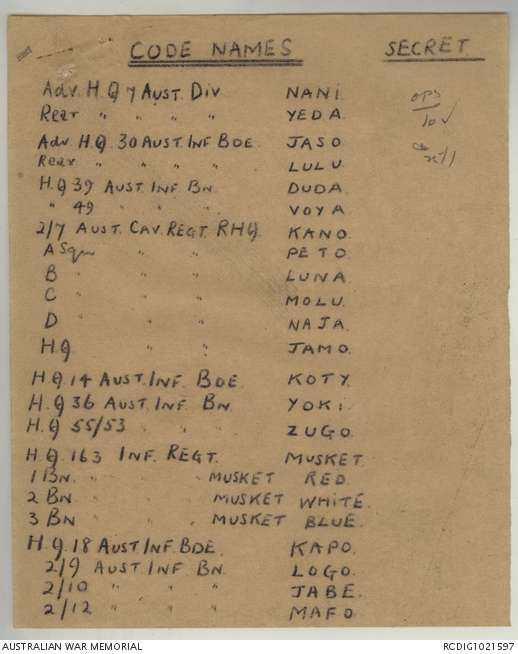 CODE NAMES SECRET
Adv. H.Q 7 AUST. DIV. NANI.
Rear " " " " YEDA.
Adv HQ 30 AUST INF BDE. JASO
Rear " " " " LULU.
H.Q 39 AUST INF BN. DUDA.
" 49 " " " VOYA
2/7 AUST. CAV. REGT. RHQ. KANO.
A Sqn " " PETO.
B " " LUNA.
C " " MOLU.
D " " NAJA.
HQ " " JAMO.
H.Q 14 AUST. INF. BDE. KOTY.
H.Q 36 AUST INF BN. YOKI.
H.Q 55/53 " " ZUGO.
H.Q 163 INF. REGT. MUSKET.
1 BN. " " MUSKET RED.
2 BN " " MUSKET WHITE.
3 BN " " MUSKET BLUE.
H.Q. 18 AUST INF. BDE. KAPO.
2/9 AUST INF BN. LOGO.
2/10 " " " JABE.
2/12 " " " MAFO.
ops
10 ✓
AUSTRALIAN WAR MEMORIAL RCDIG1021597